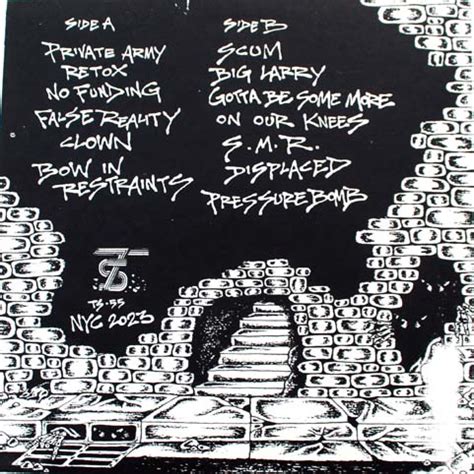 SIDE A
PRIVATE ARMY
RETOX
NO FUNDING
FALSE REALITY
CLOWN
BOW IN
RESTRAINTS
SIDE B
SCUM
BIG LARRY
GOTTA BE SOME MORE
ON OUR KNEES
S.M.R.
DISPLACED
PRESSURE BOMB
TS-55
NYC 2023